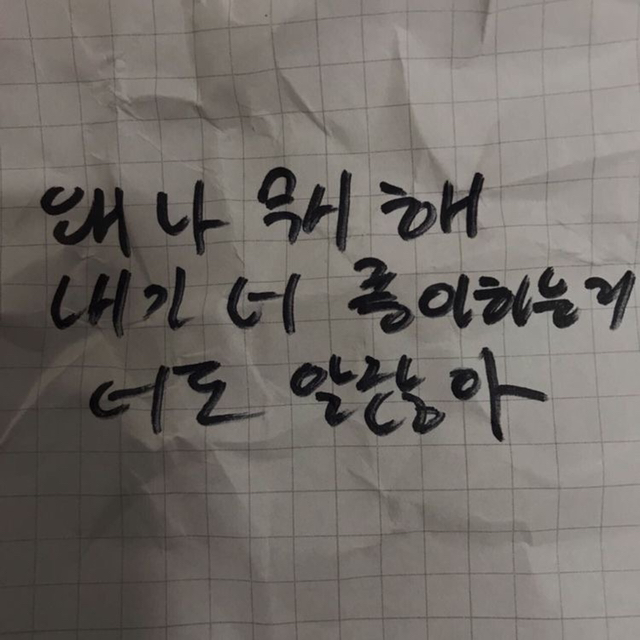 왜 나 뭐 해
내가 너 좋아하는거
너도 알잖아